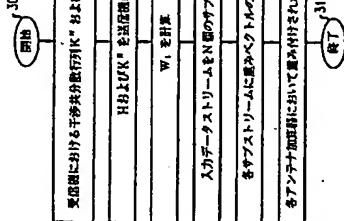 30
開始
受信機における干渉共分散行列K" およ
HおよびK" を送信機
W₁ を計算
入力データストリームをN個のサブ
各サブストリームに重みベクトルの
各アンテナ加算器において重み付けされ
終了
31